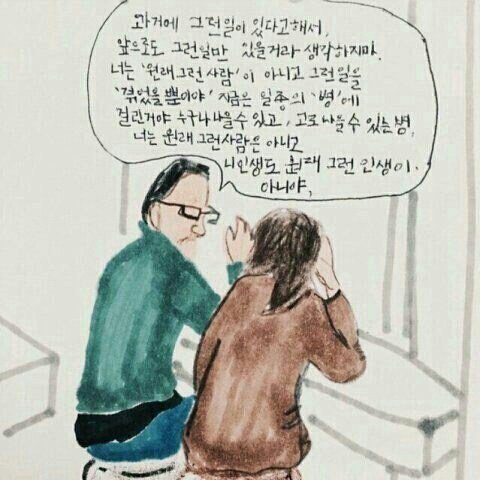 과거에 그런일이 있다고해서,
앞으로도 그런일만 있을거라 생각하지마.
너는 '원래 그런 사람'이 아니고 그런일을
'겪었을 뿐이야' 지금은 일종의 '병'에
걸린거야 누구나 나을 수 있고, 고로 나을 수 있는 병.
너는 원래 그런사람은 아니고
니인생도 원래 그런 인생이.
아니야,